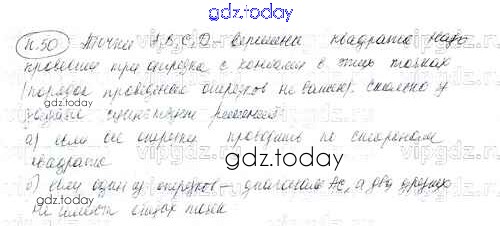 gdz.today
п.50 Точки A, B, C, D вершины квадрата. Надо
провести три отрезка с концами в этих точках
(порядок проведения отрезков не важен). Сколько у
задачи существует решений
а) если все отрезки проводить по сторонам
gdz.today
квадрата
б) если один из отрезков — диагональ AC, а два других
не имеют общих точек
gdz.today